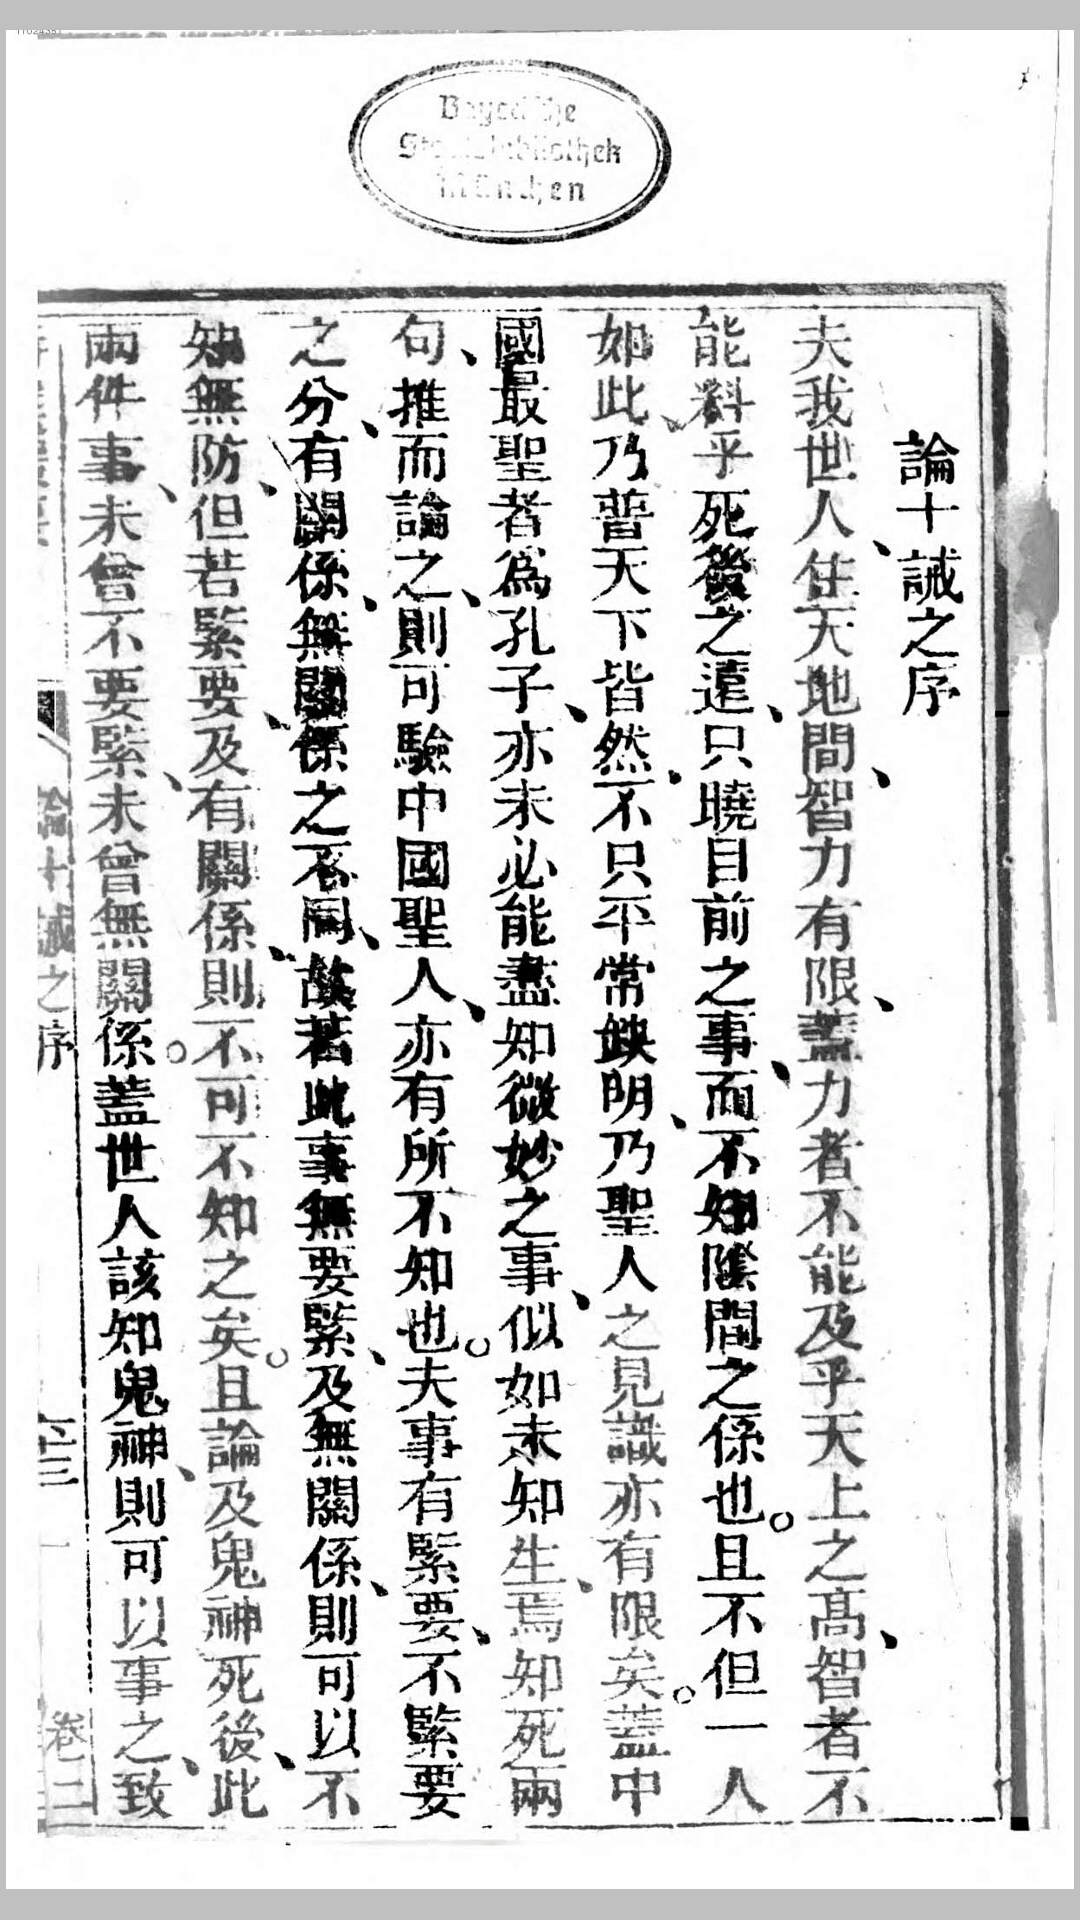 11024391
Bayerische
Staatsbibliothek
München
論十誡之序
夫我世人、住天地間、智力有限、蓋力者不能及乎天上之高、智者不
能料乎死後之遠、只曉目前之事、而不知陰間之係也。且不但一人
如此、乃普天下皆然、不只平常缺明、乃聖人之見識亦有限矣。蓋中
國最聖者爲孔子、亦未必能盡知微妙之事、似如未知生、焉知死兩
句、推而論之、則可驗中國聖人、亦有所不知也。夫事有緊要、不緊要
之分、有關係、無關係之不同、故若此事無要緊、及無關係、則可以不
知無防、但若緊要、及有關係、則不可不知之矣。且論及鬼神死後、此
兩件事、未曾不要緊、未曾無關係。蓋世人該知鬼神、則可以事之、致
論十誡之序
卷二